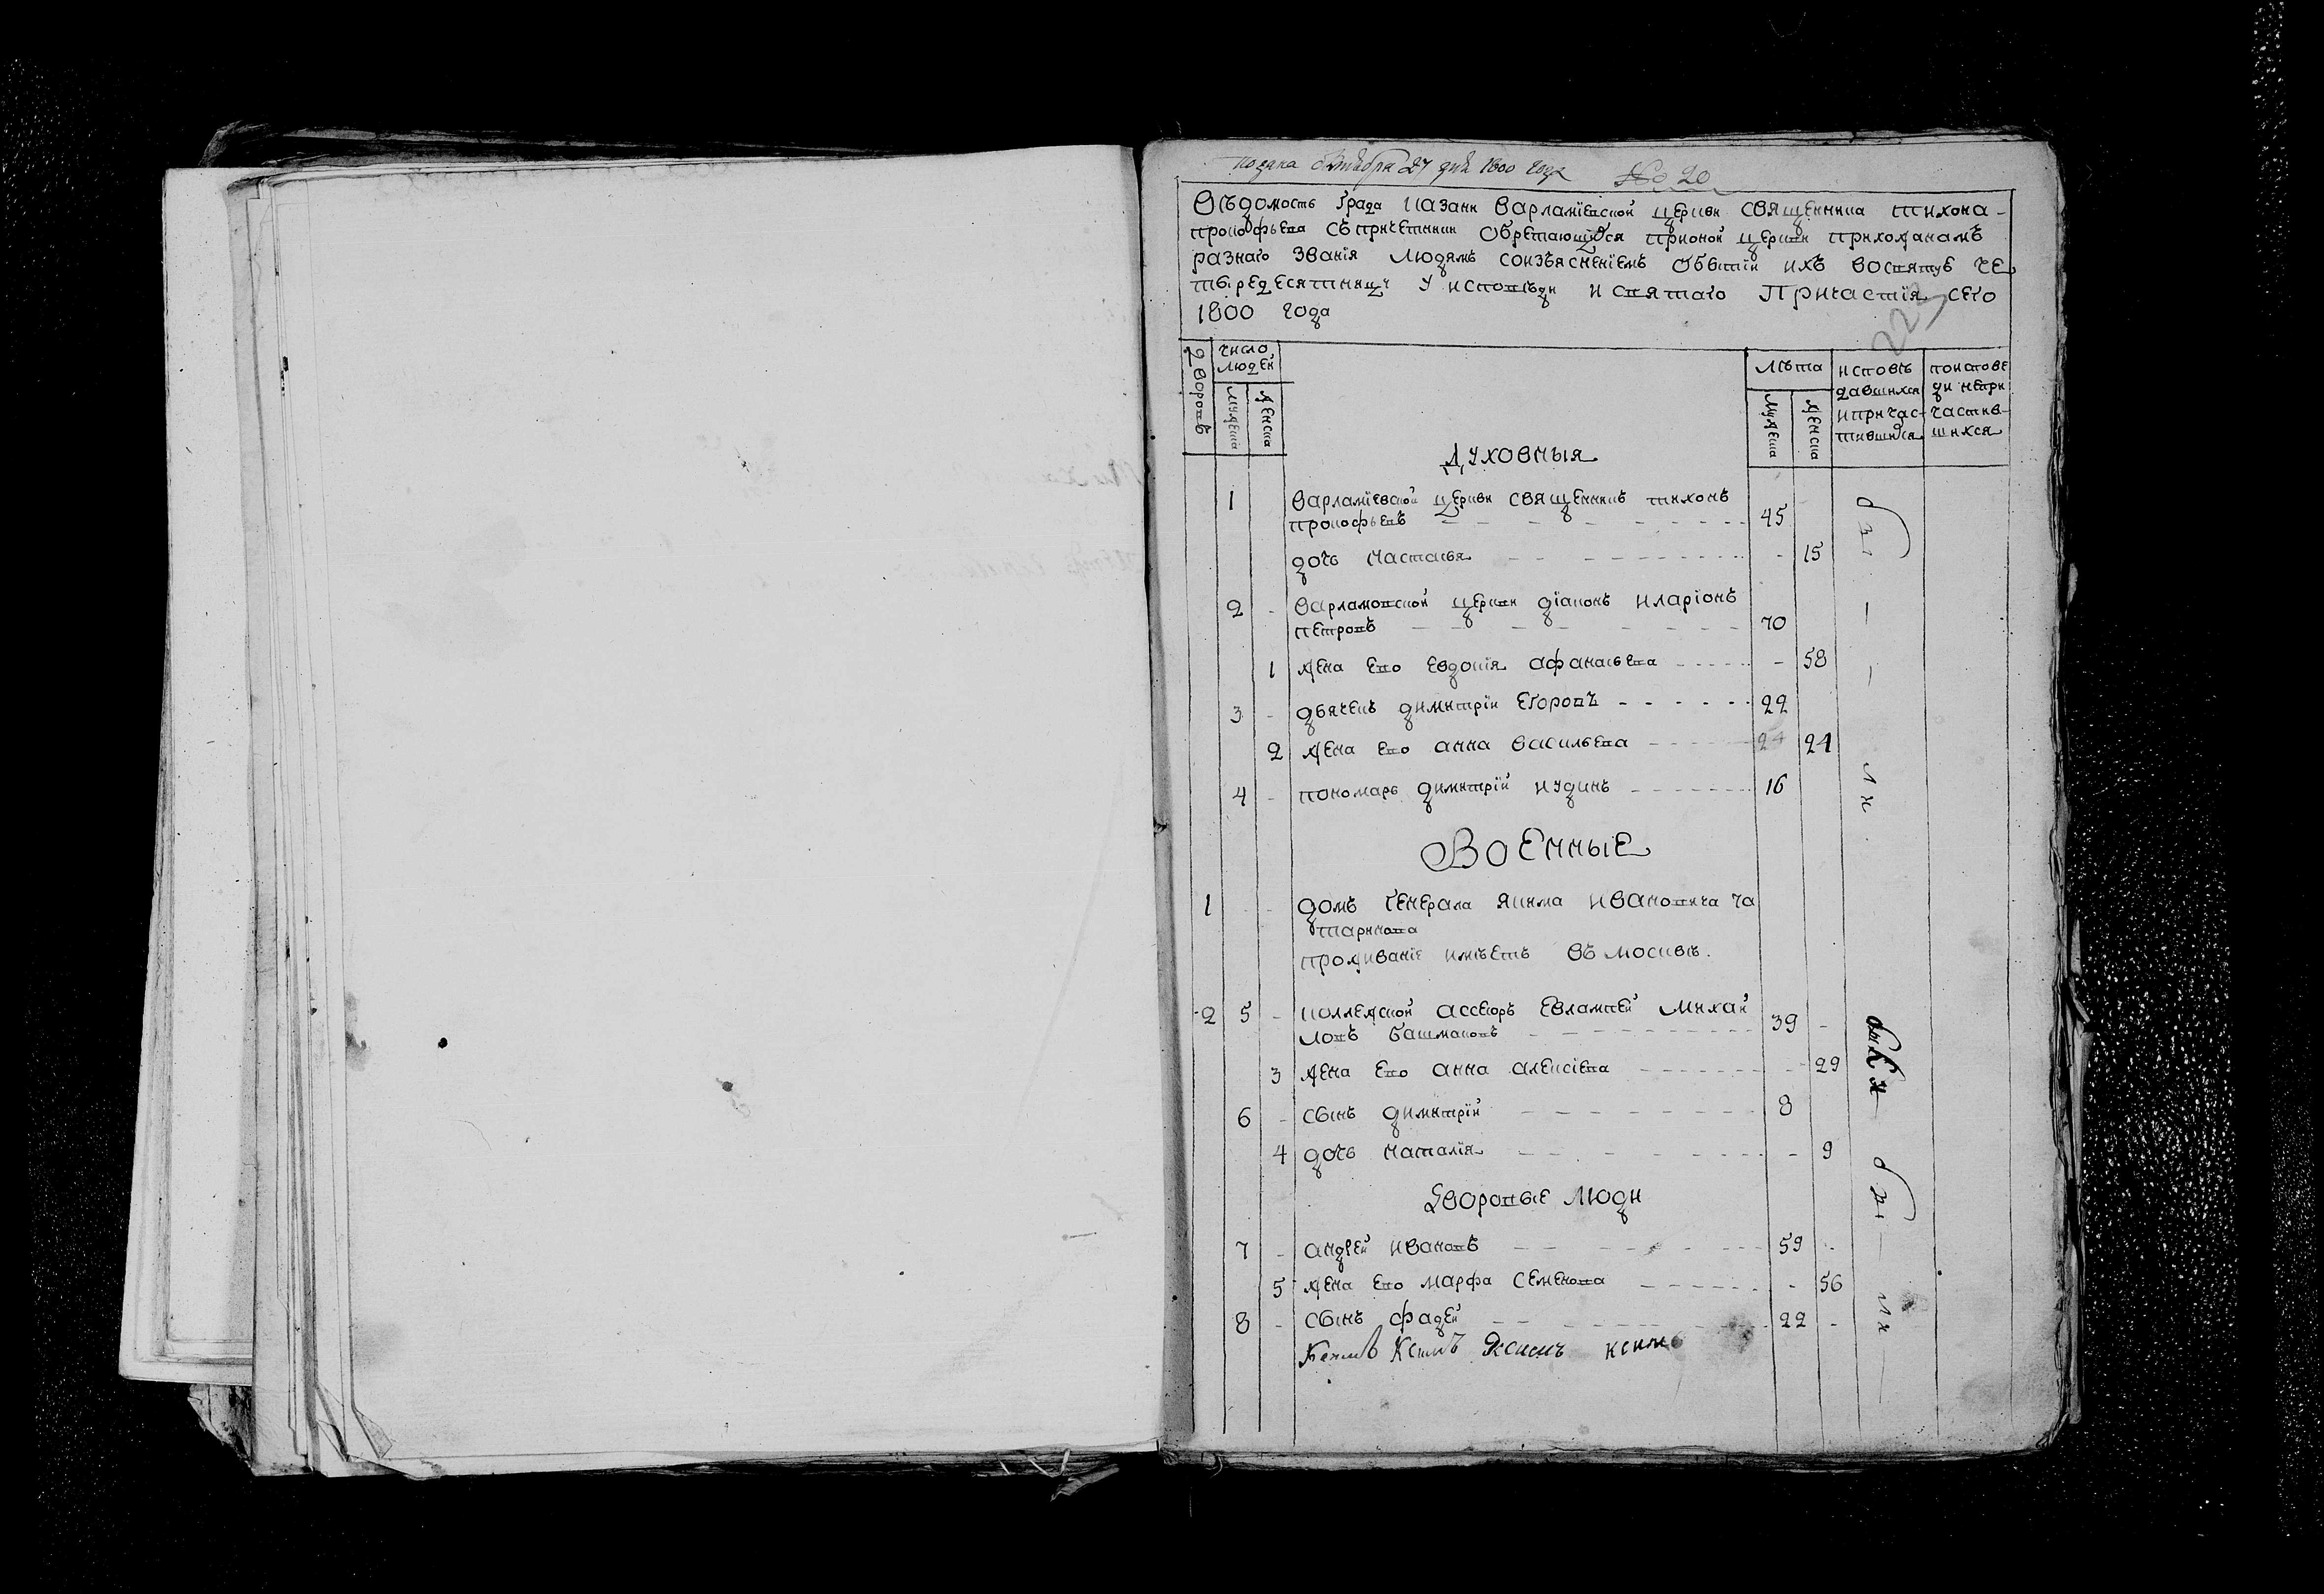 подана октября 27 дня 1800 года № 20
Вѣдомость града Казани Варламїевской церкви священника тихона
прокофьева съ причетники обретающихся прионой церкви прихожанамъ
разнаго званїя людямъ соизъясненїемъ обытїи ихъ восвятуе че
тыредесятницу у исповѣди и святаго Причастїя сего
1800 года
223
дворовъ
число людей
мужеска
женска
лѣта
мужеска
женска
исповѣ
давшихся
и причас-
тившихся
поисповѣ
ди непри
частив-
шихся
Духовныя
1 Варламїевской церкви священникъ тихонъ
прокофьевъ 45
дочь настасья - 15
2 - Варламовской церкви дїаконъ иларїонъ
петровъ 70
1 жена ево евдокїя афанасьева - 58
3 - дьячекъ димитрїи егоровъ 22
2 жена ево анна васильева 24 24
4 - пономарь димитрїй иудинъ 16
Военные
1 домъ генерала якима ивановича ча
тарикова
проживанїе имѣетъ въ москвѣ.
2 5 - коллежской ассесоръ евлампей михаи
ловъ башмаковъ 39 -
3 жена ево анна алексїева - 29
6 - сынъ димитрїй 8
4 дочь наталїя - 9
Дворовые люди
7 - андрей ивановъ 59 -
5 жена ево марфа семенова - 56
8 - сынъ фадей 22 -
были
были